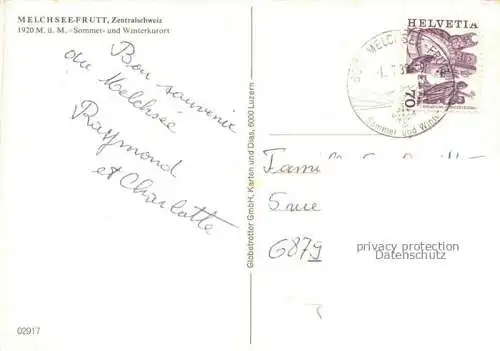 MELCHSEE-FRUTT, Zentralschweiz
1920 M. ü. M. - Sommer- und Winterkurort
Bon souvenir
du Melchsée
Raymond
et Charlotte
Globetrotter GmbH, Karten und Dias, 6000 Luzern
HELVETIA
70
MELCHSEE-FRUTT
Sommer und Winter
Fami
6879
privacy protection
Datenschutz
02917